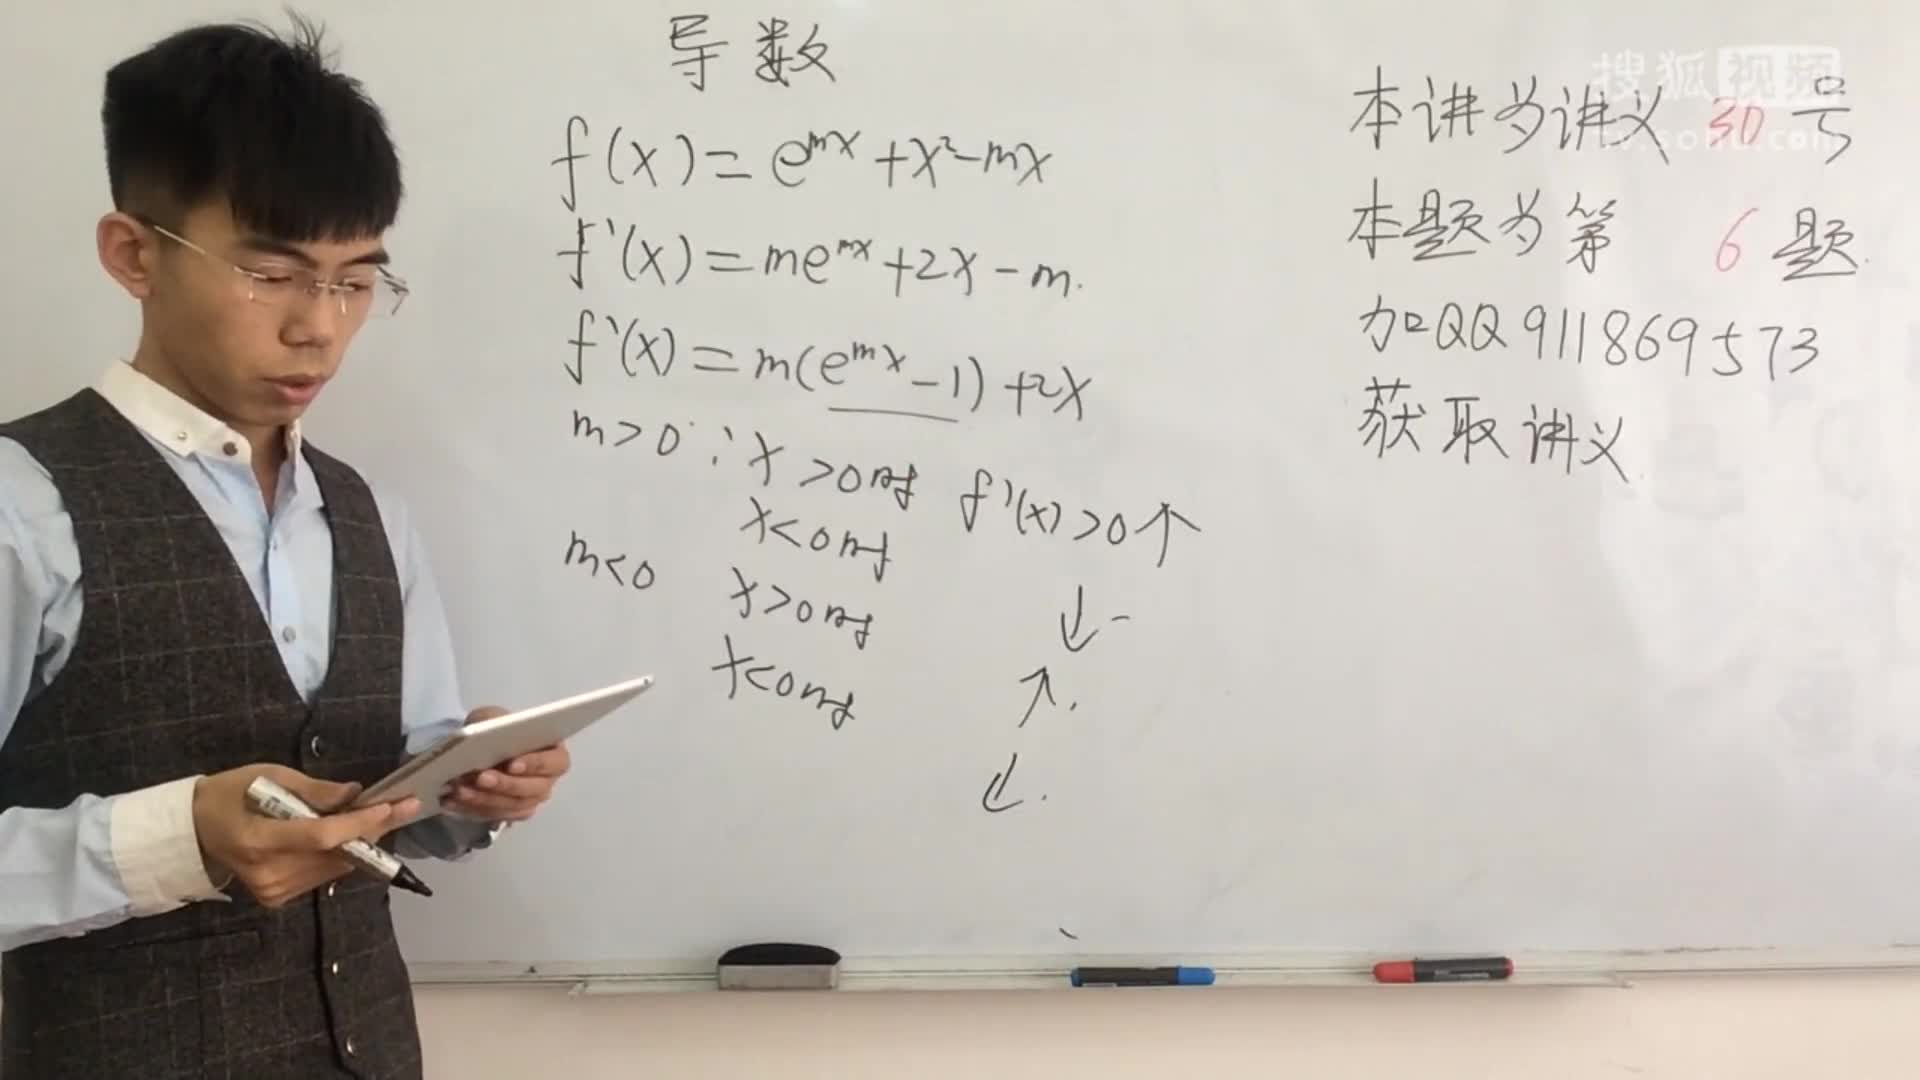 导数
f(x)=e^{mx}+x²-mx
f'(x)=me^{mx}+2x-m.
f'(x)=m(e^{mx}-1)+2x
m>0∵x>0时 f'(x)>0↑
x<0时
↓-
m<0 x>0时
↑.
x<0时
↓.
本讲为讲义30号
本题为第 6 题.
加QQ911869573
获取讲义
搜狐视频
tv.sohu.com